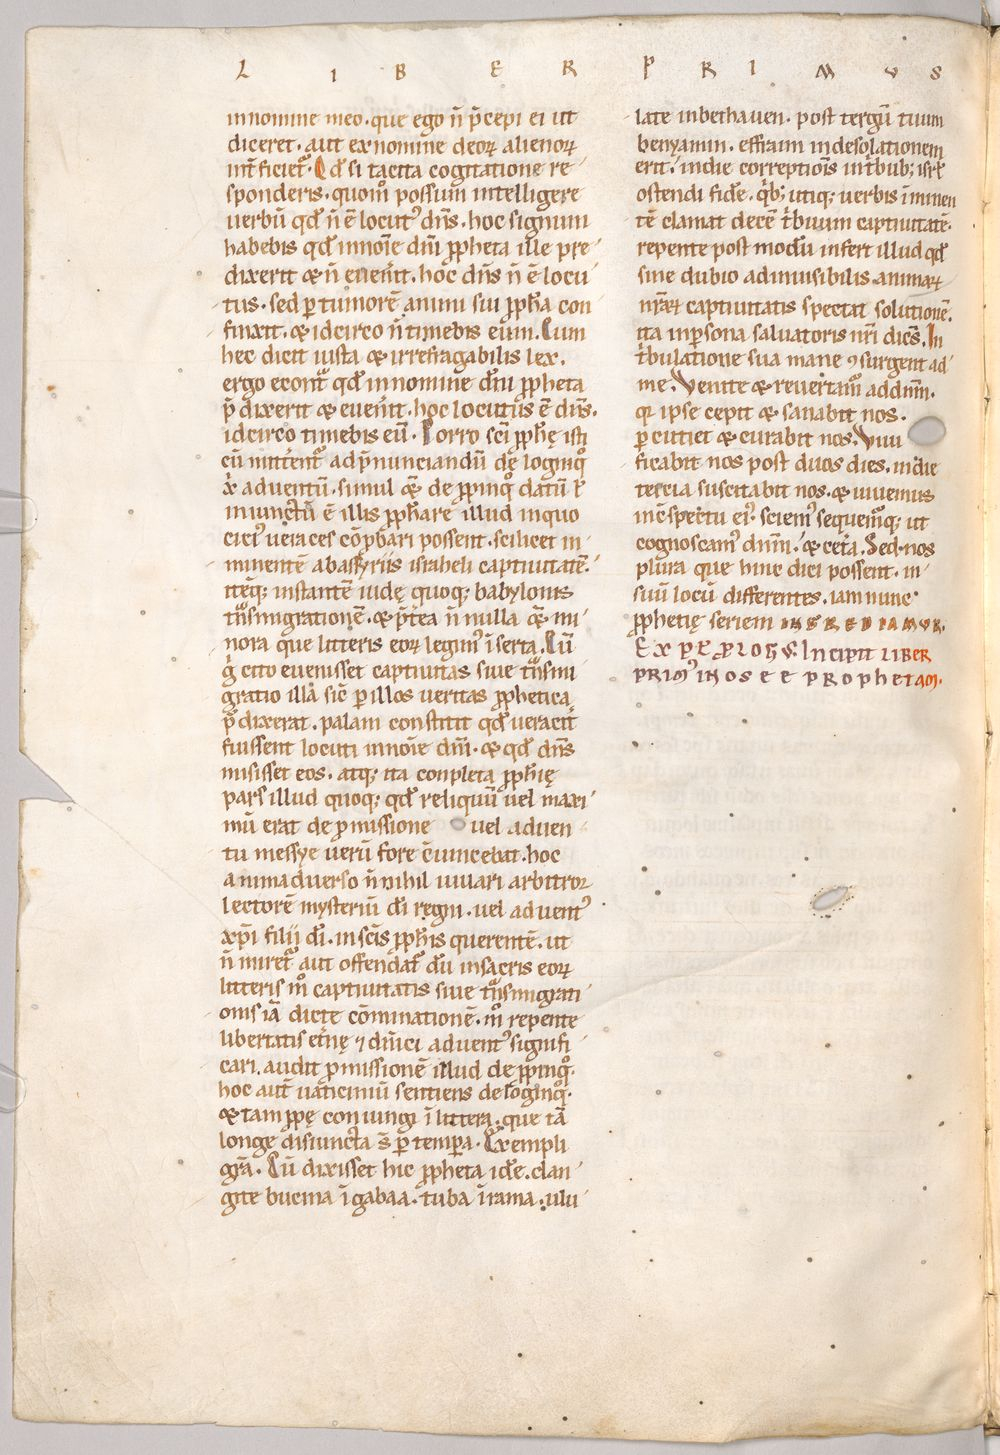 LIBER PRIMVS
in nomine meo. que ego n̄ p̄cepi ei ut
diceret. aut ex nomine deoꝝ alienoꝝ
int̄ficiet᷑. Qd̄ si tacita cogitatione re
sponderis. quom̊ possum intelligere
uerbū qd̄ n̄ ē locutꝰ dn̄s. hoc signum
habebis qd̄ in noīe dn̄i ꝓpheta ille pre
dixerit & n̄ euen̄it. hoc dn̄s n̄ ē locu
tus. sed ꝑ tumorē animi sui ꝓph̄a con
finxit. & idcirco n̄ timebis eum. Cum
hec dicit iusta & irrefragabilis lex.
ergo econt̄ qd̄ in nomine dn̄i ꝓpheta
p̄dixerit & euen̄it. hoc locutus ē dn̄s.
idcirco timebis eū. Porro sc̄i ꝓph̄ę isti
cū mittent᷑ ad p̄nunciandū de longinq̊
xp̄i aduentū. simul &̄ de ꝓpinq̊ datū ł
iniunctū ē illis ꝓph̄are illud in quo
ciciꝰ ueraces cōꝓbari possent. scilicet in
minentē ab assyriis israheli captiuitatē.
itēq; instantē iudę quoq; babylonis
tn̊smigrationē. & p̄t̄ea n̄ nulla &̄ mi
nora que litteris eoꝝ legimꝰ īserta. Cū
g̊ cito euenisset captiuitas siue tn̊smi
gratio illa sic̄ ꝑ illos ueritas ꝓphetica
p̄dixerat. palam constitit qd̄ ueracit̄
fuissent locuti in noīe dn̄i. & qd̄ dn̄s
misisset eos. atq; ita conpleta ꝓph̄ię
pars illud quoq; qd̄ reliquū uel maxi
mū erat de ꝓmissione uel aduen
tu messye uerū fore cōuincebat. hoc
animaduerso n̄ nihil iuuari arbitror
lectorē mysteriū dī regni. uel aduentꝰ
xp̄i filii dī. in sc̄is ꝓph̄is querentē. ut
n̄ miret᷑ aut offendat᷑ dū in sacris eoꝝ
litteris m̊ captiuitatis siue tn̊smigrati
onis iā dictę cōminationē. m̊ repente
libertatis et̄nę ⁊ dn̄ici aduentꝰ signifi
cari. audit ꝓmissionē illud de ꝓpinq̊.
hoc aut̄ uaticiniū sentiens de longinq̊.
& tam ꝓpę coniungi ī littera. que tā
longe disiuncta s̄ ꝑ tempora. Exempli
grā. Cū dixisset hic ꝓpheta idē. clan
gite bucina ī gabaa. tuba ī rama. ulu
late in bethauen. post tergū tuum
benyamin. effraim in desolationem
erit. in die correptiōis in tribub; isrł
ostendi fidē. q̊b; utiq; uerbis īminen
tē clamat decē tribuum captiuitatē.
repente post modū infert illud qd̄
sine dubio ad inuisibilis animaꝝ
nr̄aꝝ captiuitatis spectat solutionē.
ita in ꝑsona saluatoris nr̄i dicēs. In
tribulatione sua mane ꝯsurgent ad
me. Venite & reuertam̊ ad dn̄m.
qr ipse cepit & sanabit nos.
ꝑcutiet & curabit nos. Viui
ficabit nos post duos dies. in die
tercia suscitabit nos. & uiuemus
in cōspectu eiꝰ. sciemꝰ sequem̊q; ut
cognoscamꝰ dn̄m. & cet̄a. Sed nos
plura que hinc dici possent. in
suū locū differentes. iam nunc
ꝓphetię seriem INGREDIAMVR.
EXPĒ PROLOGVS. Incipit LIBER
PRIMꝰ IN OSEE PROPHETAM.